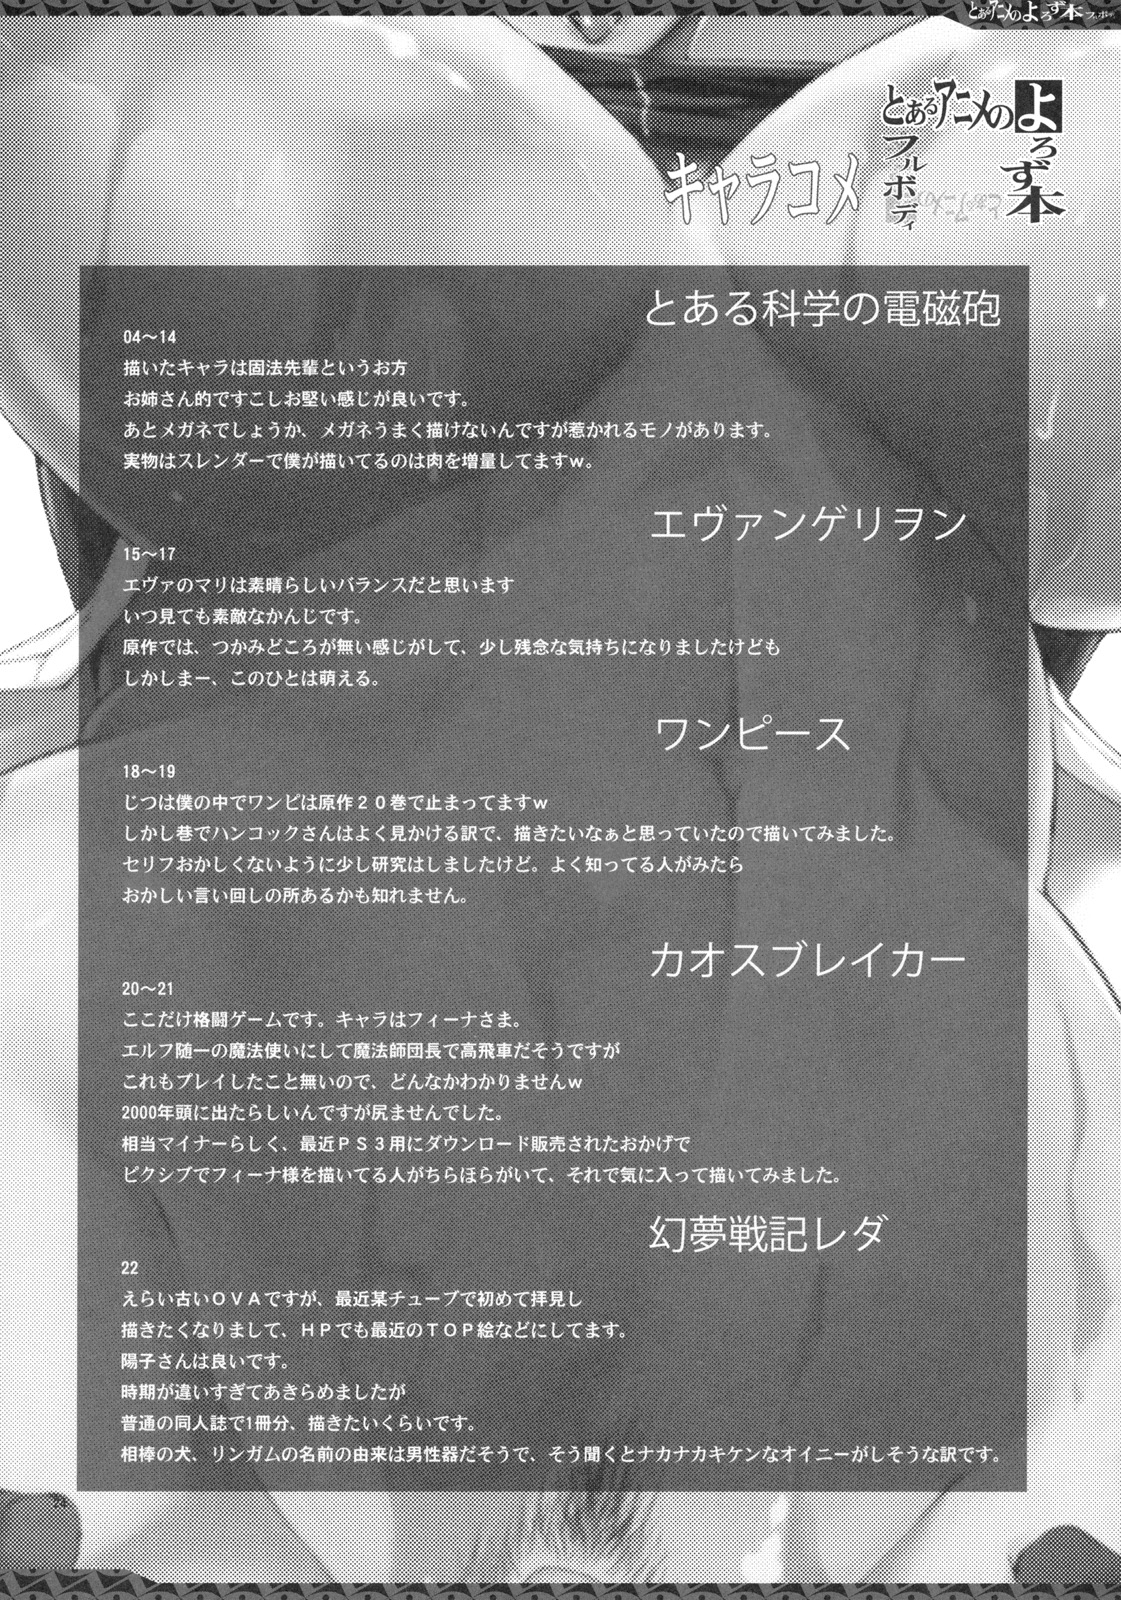 とあるアニメのよろず本 フルボディ
とあるアニメのよろず本
フルボディ
キャラコメ
とある科学の電磁砲
04～14
描いたキャラは固法先輩というお方
お姉さん的ですこしお堅い感じが良いです。
あとメガネでしょうか、メガネうまく描けないんですが惹かれるモノがあります。
実物はスレンダーで僕が描いてるのは肉を増量してますｗ。
エヴァンゲリヲン
15～17
エヴァのマリは素晴らしいバランスだと思います
いつ見ても素敵なかんじです。
原作では、つかみどころが無い感じがして、少し残念な気持ちになりましたけども
しかしまー、このひとは萌える。
ワンピース
18～19
じつは僕の中でワンピは原作２０巻で止まってますｗ
しかし巷でハンコックさんはよく見かける訳で、描きたいなぁと思っていたので描いてみました。
セリフおかしくないように少し研究はしましたけど。よく知ってる人がみたら
おかしい言い回しの所あるかも知れません。
カオスブレイカー
20～21
ここだけ格闘ゲームです。キャラはフィーナさま。
エルフ随一の魔法使いにして魔法師団長で高飛車だそうですが
これもプレイしたこと無いので、どんなかわかりませんｗ
2000年頭に出たらしいんですが尻ませんでした。
相当マイナーらしく、最近ＰＳ３用にダウンロード販売されたおかげで
ピクシブでフィーナ様を描いてる人がちらほらがいて、それで気に入って描いてみました。
幻夢戦記レダ
22
えらい古いＯＶＡですが、最近某チューブで初めて拝見し
描きたくなりまして、ＨＰでも最近のＴＯＰ絵などにしてます。
陽子さんは良いです。
時期が違いすぎてあきらめましたが
普通の同人誌で1冊分、描きたいくらいです。
相棒の犬、リンガムの名前の由来は男性器だそうで、そう聞くとナカナカキケンなオイニーがしそうな訳です。
24